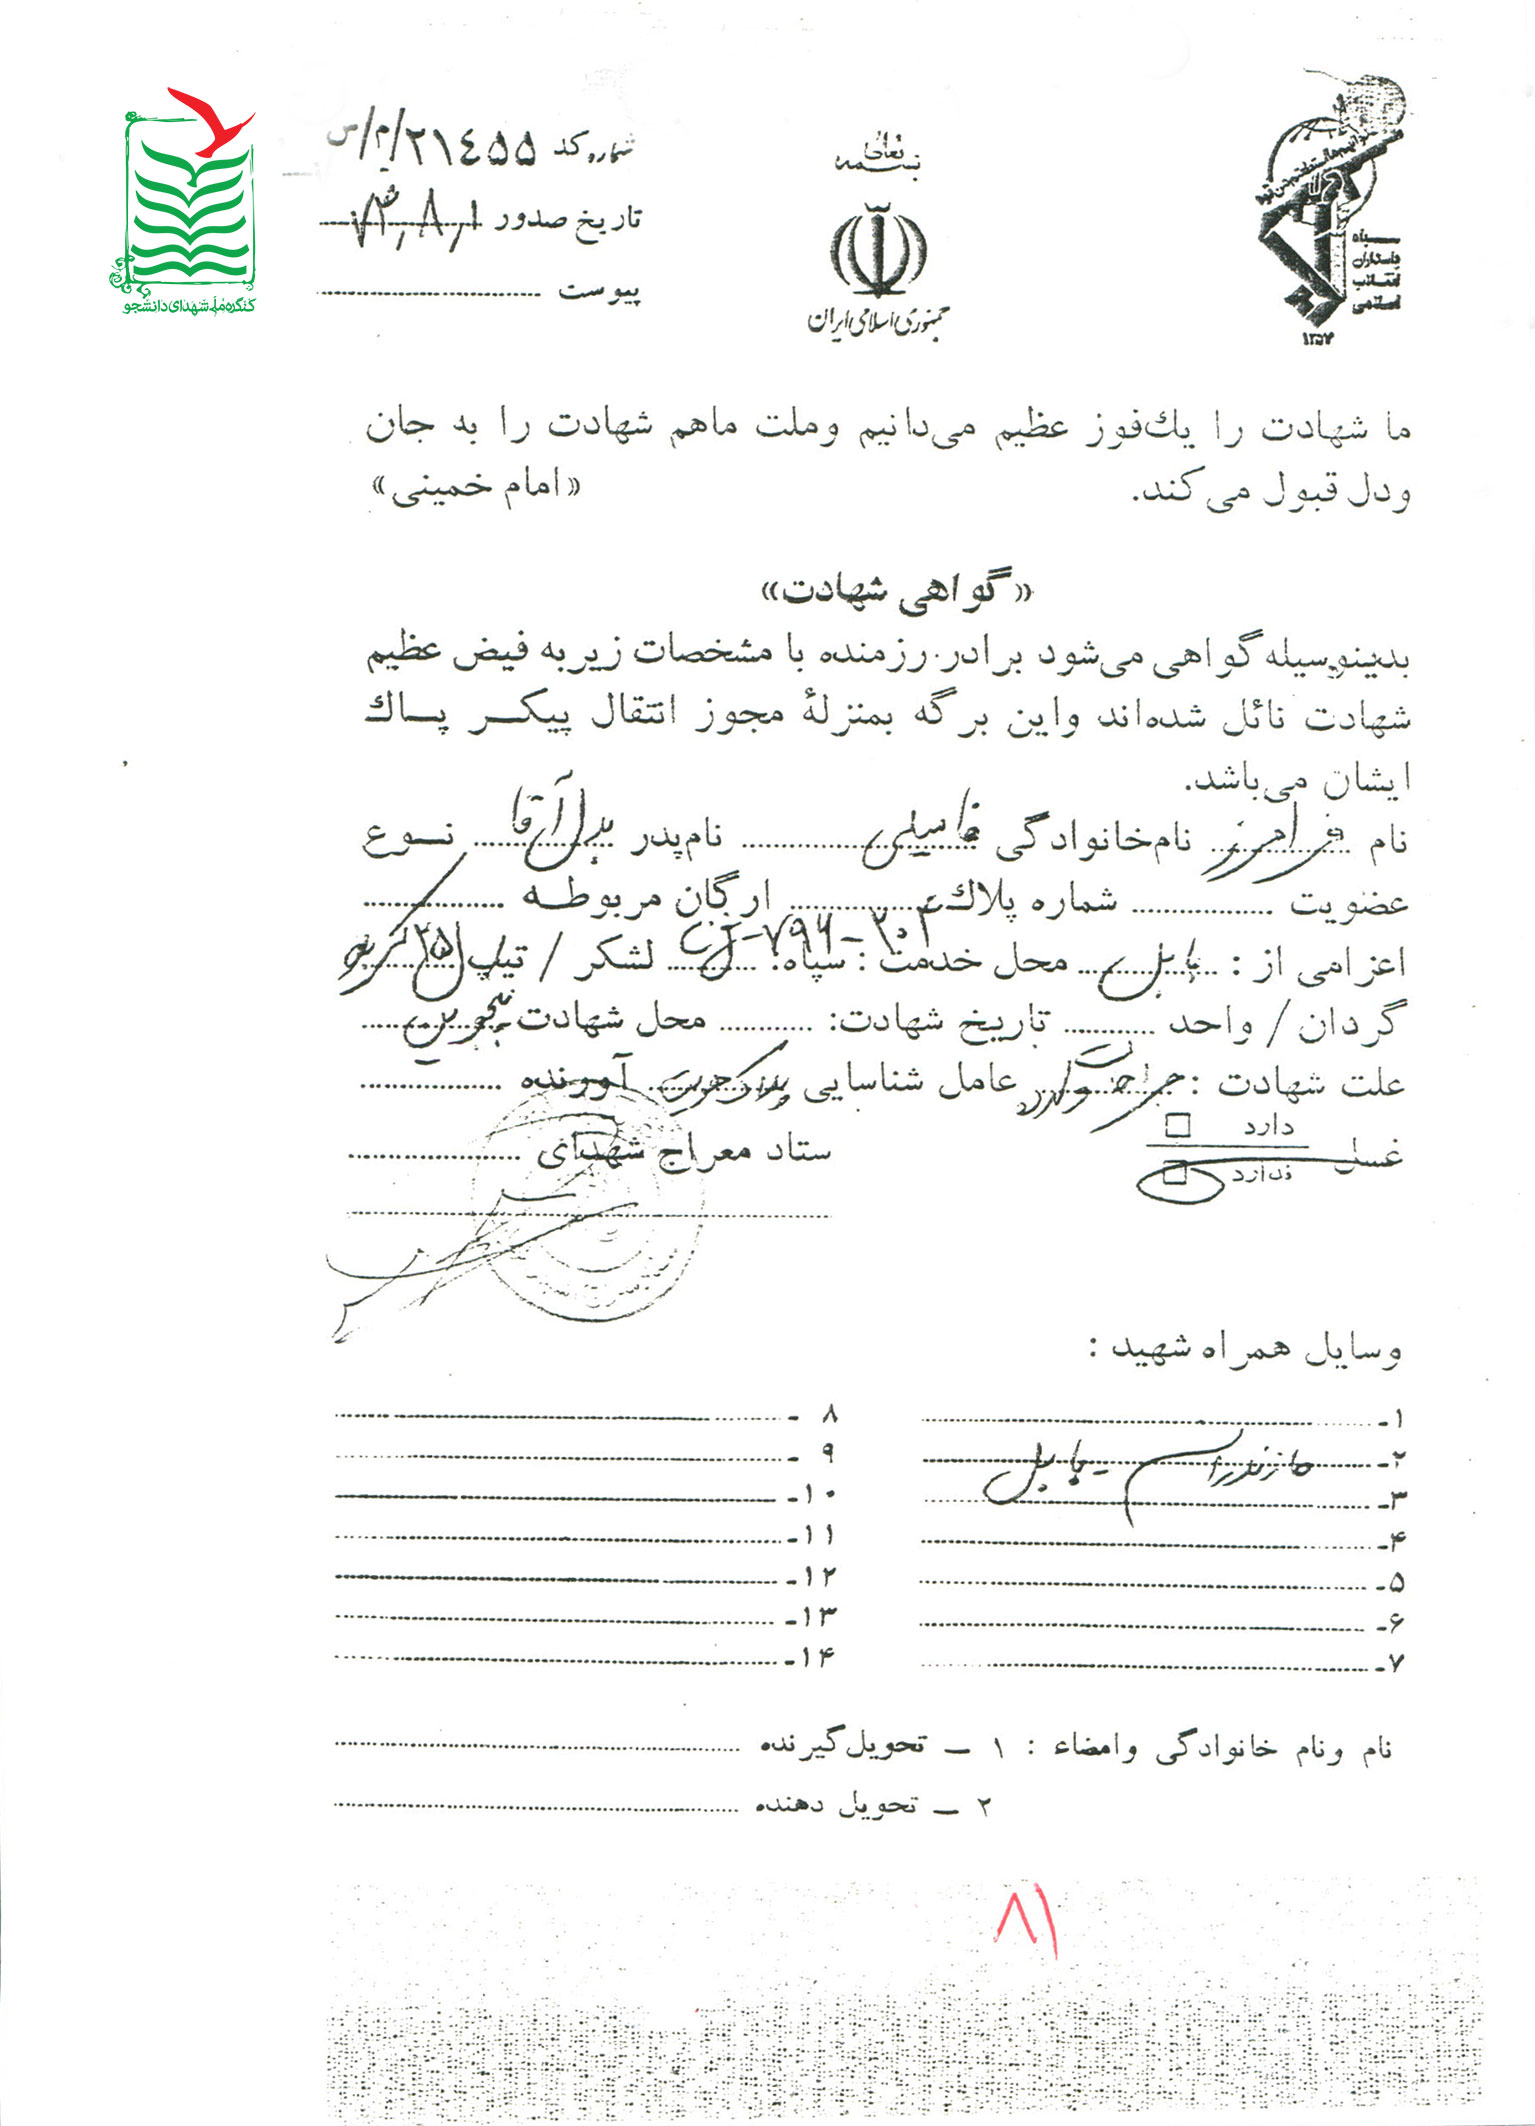 بسمه تعالی
جمهوری اسلامی ایران
سپاه
پاسداران
انقلاب
اسلامی
شماره کد ۲۱۴۵۵/م/س
تاریخ صدور ۷۳,۸,۱
پیوست
کنگره ملی شهدای دانشجو
ما شهادت را یك‌فوز عظیم می‌دانیم وملت ماهم شهادت را به جان
ودل قبول می‌کند. «امام خمینی»
«گواهی شهادت»
بدینوسیله گواهی می‌شود برادر رزمنده با مشخصات زیربه فیض عظیم
شهادت نائل شده‌اند واین برگه بمنزلهٔ مجوز انتقال پیکر پاك
ایشان می‌باشد.
نام فرامرز نام‌خانوادگی نام‌پدر بدل آقا نوع
عضویت شماره پلاك ارگان مربوطه
اعزامی از : بابل محل خدمت : سپاه: لشکر / تیپ ل ۲۵ کربلا
گردان / واحد تاریخ شهادت: محل شهادت مجنون
علت شهادت : جراحات وارده عامل شناسایی آورنده
غسل دارد □
ندارد □
ستاد معراج شهدای
وسایل همراه شهید :
۱-
۲- مازندران - بابل
۳-
۴-
۵-
۶-
۷-
۸ -
۹ -
۱۰-
۱۱-
۱۲-
۱۳-
۱۴-
نام ونام خانوادگی وامضاء : ۱ - تحویل‌گیرنده
۲ - تحویل دهنده
۸۱